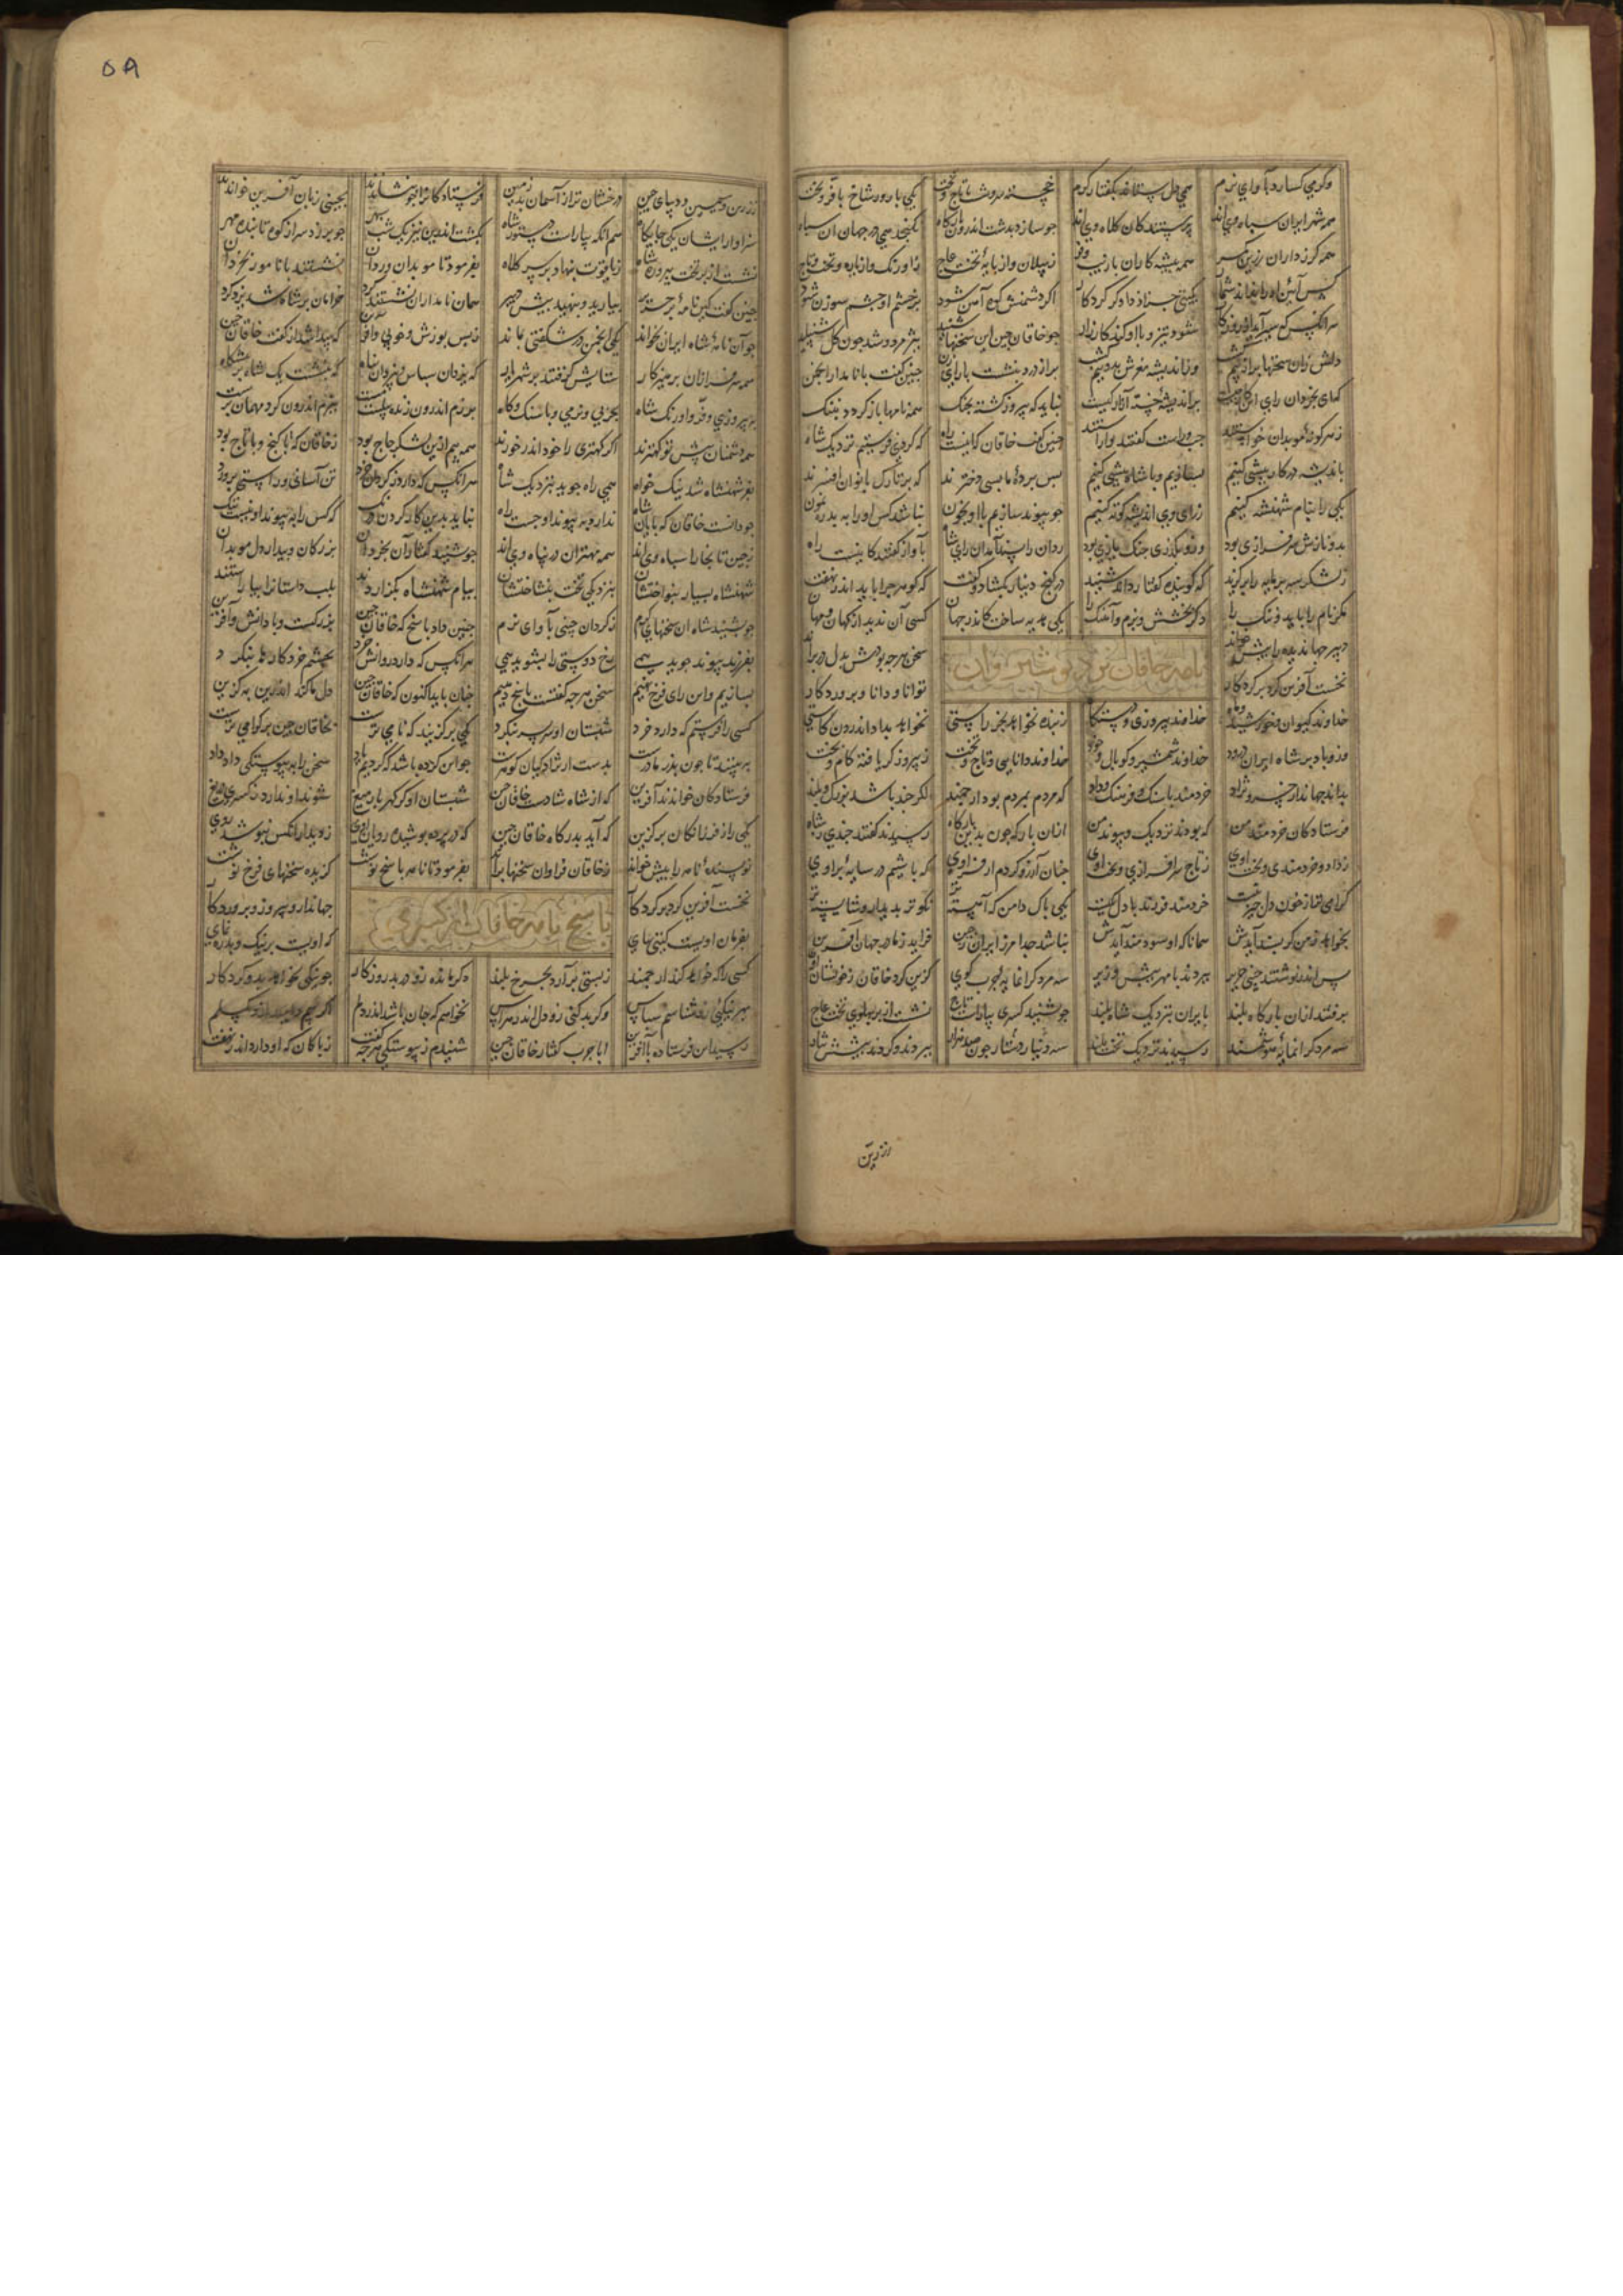 وکر می کسارد بآوای نرم همی دل ستاند بکفتار کرم خجسته سروشست با تاج وتخت یکی بارور شاخ با فر وبخت
همه شهر ایران سپاه وی اند پرستندکان کلاه وی اند جو سازد بدشت اندرون بارکاه نکنجد همی در جهان آن سپاه
همه کرزداران زرین کمر همه پیشه کاران با زیب وفر ز پیلان واز پایهٔ تخت عاج ز اورنک واز یاره وتخت وتاج
کس آئین او را نداند شمار بکیتی جز از دادکر کردکار اکر دشمنش کوه آهن شود بر خشم او چشم سوزن شود
هر آنکس که سیر آید از روزکار شود تیز وبا او کند کارزار جو خاقان چین این سخنها شنید بپژمرد وشد جون کل شنبلید
دلش زان سخنها بدو نیم وز اندیشه مغزش بدو نیم براز درد بنشست با رای زن جنین کفت با نامدار انجمن
که ای بخردان رای این کار چیست بر اندیشهٔ خسته آزار کیست نباید که پیروز کشته بجنک همه نامها باز کردد بننک
ز هر کونهٔ موبدان خواستند چپ وراست کفتند واراستند جنین کفت خاقان که اینست راه که کردی فرستیم نزدیک شاه
باندیشه در کار پیشی کنیم بسازیم وبا شاه خویشی کنیم پس پردهٔ ما بسی دخترند که بر تارک بانوان افسرند
یکی را بنام شهنشه کنیم ز رای وی اندیشه کوته کنیم جو پیوند سازیم با او بخون نباشد کس او را به بد رهنمون
بدو نازش وسرفرازی بود وزو بکذری جنک بازی بود ردان را پسند آمد آن رای شاه بآواز کفتند کاینست راه
ز لشکر سه پرمایه را برکزید که کویند کفتار وداند شنید در کنج دینار بکشاد وکفت که کوهر چرا باید اندر نهفت
مکر نام را باید وننک را دکر بخشش وبزم وآهنک را یکی هدیه ساخت کاندر جهان کسی آن ندید از کهان ومهان
دبیر جهاندیده را پیش خواند سخن هر جه بودش بدل در براند
نامه خاقان نزد نوشیروان
نخست آفرین کرد بر کردکار توانا ودانا وپروردکار
خداوند کیوان وخورشید وماه خداوند پیروزی ودستکاه ز بنده نخواهد بجز راستی نخواهد بداد اندرون کاستی
وزو باد بر شاه ایران درود خداوند شمشیر وکوپال وخود خداوند دانایی وتاج وتخت ز پیروزکر یافته کام وبخت
بداند جهاندار خسرونژاد خردمند با سنک وفرهنک وداد که مردم بمردم بود ارجمند اکر چند باشد بزرک وبلند
فرستادکان خردمند من که بودند نزدیک وپیوند من ازان بارکه جون بدین بارکاه رسیدند کفتند جندی ز شاه
ز داد وخردمندی وبخت اوی ز تاج وسرافرازی وتخت اوی جنان آرزو کردم از فر اوی که باشیم در سایهٔ پر اوی
کرامی تر از خون دل چیز نیست خردمند فرزند با دل یکیست یکی پاک دامن که آهسته تر نکوتر بدیدار وشایسته تر
بخواهد ز من کر پسند آیدش همانا که او سودمند آیدش نباشد جدا مرز ایران ز چین فزاید ز ما در جهان آفرین
پس اندر نوشتند چینی حریر ببردند با مهر پیش وزیر سه مرد کرانمایه خوب کوی کزین کرد خاقان ز خویشان اوی
برفتند ازان بارکاه بلند بایران بنزدیک شاه بلند جو بشنید کسری بیاراست تاج نشست از بر پهلوی تخت عاج
سه مرد کرانمایهٔ هوشمند رسیدند نزدیک تخت بلند سه دینار ونثار جون سی هزار ببردند وکردند پیشش نثار
ز زرین
۵۸
ز زرین وسیمین ودیبای چین درخشان تر از آسمان بر زمین فرستادکان را جو بنشاندند بچینی زبان آفرین خواندند
سزاوار ایشان یکی جایکاه همانکه بیاراست دستور شاه بکشت اندرین نیز یک شب سپهر جو برزد سر از کوه تابنده مهر
نشست از بر تخت پیروز شاه ز یاقوت بنهاد بر سر کلاه بفرمود تا موبدان وردان نشستند با نامور بخردان
جنین کفت کین نامهٔ بر حریر بیارید وبنهید پیش دبیر همان نامداران نشستند کرد خرامان بر شاه شد یزدکرد
جو آن نامهٔ شاه ایران بخواند یکی انجمن در شکفتی بماند ز بس پوزش وخوبی وآفرین که پیدا شد از کفت خاقان چین
همه سرفرازان پرهیزکار ستایش کرفتند بر شهریار که یزدان سپاس وز یزدان پناه که ننشست یک شاه بر پیشکاه
به پیروزی وفر واورنک شاه بخوبی ونرمی وبا سنک وکاه برزم اندرون ژنده پیلست ببزم اندرون کرد مهمان پرست
همه دشمنان پیش تو کهترند اکر کهتری را خود اندر خورند همه بیم ازین لشکر چاج بود ز خاقان که با کنج وبا تاج بود
بفر شهنشاه شد نیک خواه همی راه جوید بنزدیک شاه هر آنکس که دارد ز کردان خرد تن آسانی وراستی پرورد
جو دانست خاقان که با پای شاه ندارد به پیوند او جست راه نباید بدین کار کردن درنک که کس را به پیوند او نیست ننک
ز چین تا بخارا سپاه وی اند همه مهتران در پناه وی اند جو بشنید کفتار آن بخردان بزرکان وبیدار دل موبدان
شهنشاه بسیار بنواختشان بنزدیکی تخت بنشاختشان پیام شهنشاه بکزاردند بلب داستانها بیاراستند
جو بشنید شاه آن سخنها بکام ز کردان چینی بآوای نرم جنین داد پاسخ که خاقان چین بزرکست وبا دانش وآفرین
بفرزند پیوند جوید همی رخ دوستی را بشوید همی هر آنکس که دارد روانش خرد بچشم خرد کارها بنکرد
بسازیم واین رای فرخ نهیم سخن هر جه کفتست پاسخ دهیم جنان باید اکنون که خاقان چین دل ما کند اندرین به کزین
کسی را فرستم که دارد خرد شبستان او سربسر بنکرد یکی برکزیند که نامی ترست بخاقان چین بر کرامی ترست
به بیند تا جون بذر مادرست بدست از نژاد کیان کوهرست جو این کرده باشد که کردیم یاد سخن را به پیوستکی داد داد
فرستادکان خواندند آفرین که از شاه شادست خاقان چین شبستان او کر کهر بار میغ شود او ندارد ز کسری دریغ
یکی را ز فرزانکان برکزین که آید بدرکاه خاقان چین که در پرده پوشیده رویان اوی ز دیدار آنکس نپوشند روی
نویسندهٔ نامه را پیش خواند ز خاقان فراوان سخنها براند بفرمود تا نامه پاسخ نوشت کزیده سخنهای فرخ نوشت
نخست آفرین کرد بر کردکار جهاندار وپیروز وپروردکار
پاسخ نامه خاقان از کسری
بفرمان اویست کیتی بپای که اویست بر نیک وبد رهنمای
کسی را که خواهد کند ارجمند ز پستی برآرد بچرخ بلند دکر مانده زو در بد روزکار جو نیکی نخواهد بدو کردکار
بهر نیکیی زو شناسم سپاس وکر بد کنی زو دل اندر هراس نخواهم که جان باشد اندر تنم
رسید این فرستاده با آفرین ابا خوب کفتار خاقان چین شنیدم ز پیوستکی هر جه کفت ز پاکان که او دارد اندر نهفت